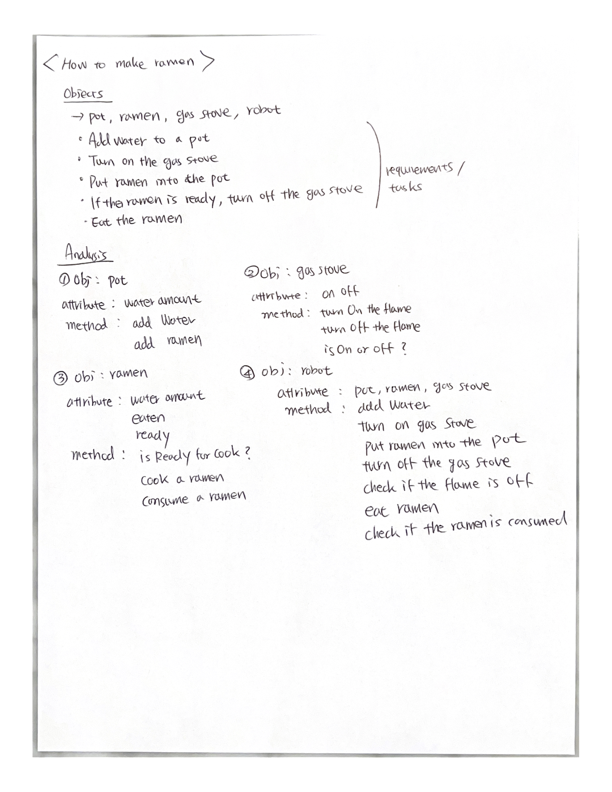 <How to make ramen>
Objects
→ pot, ramen, gas stove, robot
• Add water to a pot
• Turn on the gas stove
• Put ramen into the pot
• If the ramen is ready, turn off the gas stove
• Eat the ramen
requirements /
tasks
Analysis
① Obj : pot
attribute : water amount
method : add Water
add ramen
② Obj : gas stove
attribute : on off
method : turn On the flame
turn Off the flame
is On or off ?
③ obj : ramen
attribute : water amount
eaten
ready
method : is Ready for Cook ?
Cook a ramen
Consume a ramen
④ obj : robot
attribute : pot, ramen, gas stove
method : add Water
turn on gas stove
Put ramen into the pot
turn off the gas stove
check if the flame is off
eat ramen
check if the ramen is consumed